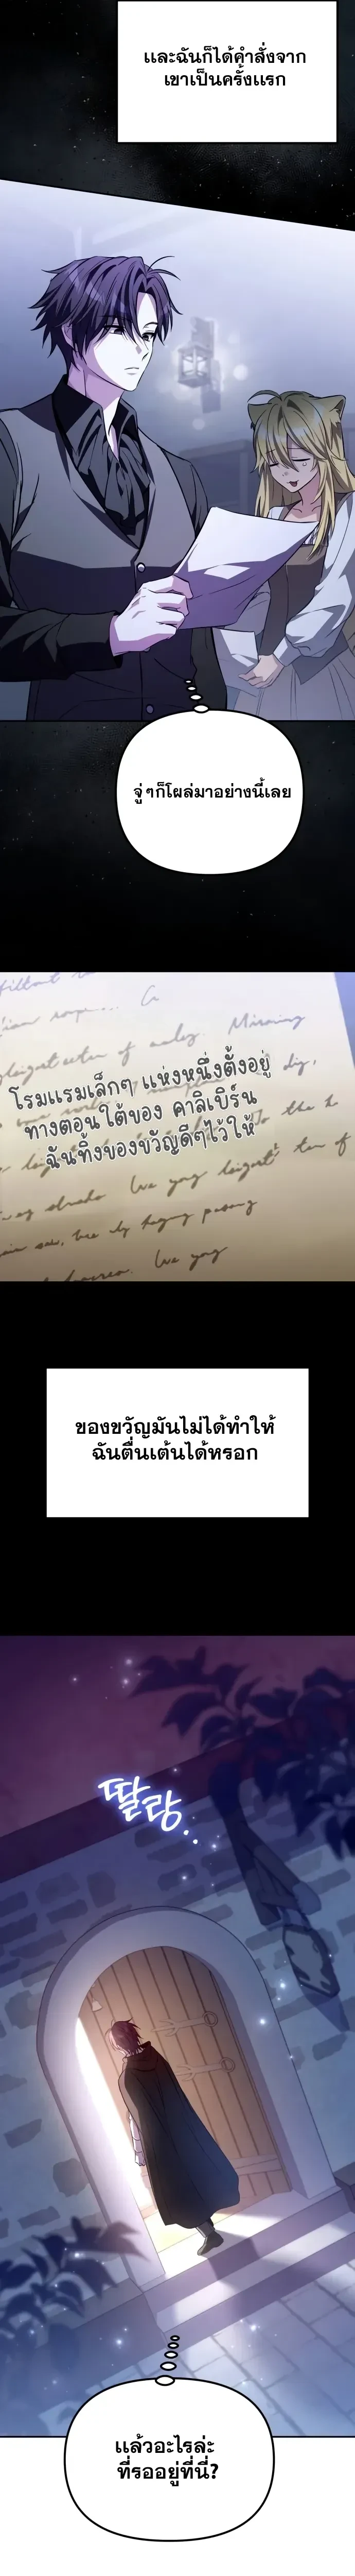 และฉันก็ได้คำสั่งจาก
เขาเป็นครั้งแรก
จู่ๆก็โผล่มาอย่างนี้เลย
โรมแรมเล็กๆ แห่งหนึ่งตั้งอยู่
ทางตอนใต้ของ คาลิเบิร์น
ฉันทิ้งของขวัญดีๆไว้ให้
ของขวัญมันไม่ได้ทำให้
ฉันตื่นเต้นได้หรอก
딸랑..
แล้วอะไรล่ะ
ที่รออยู่ที่นี่?